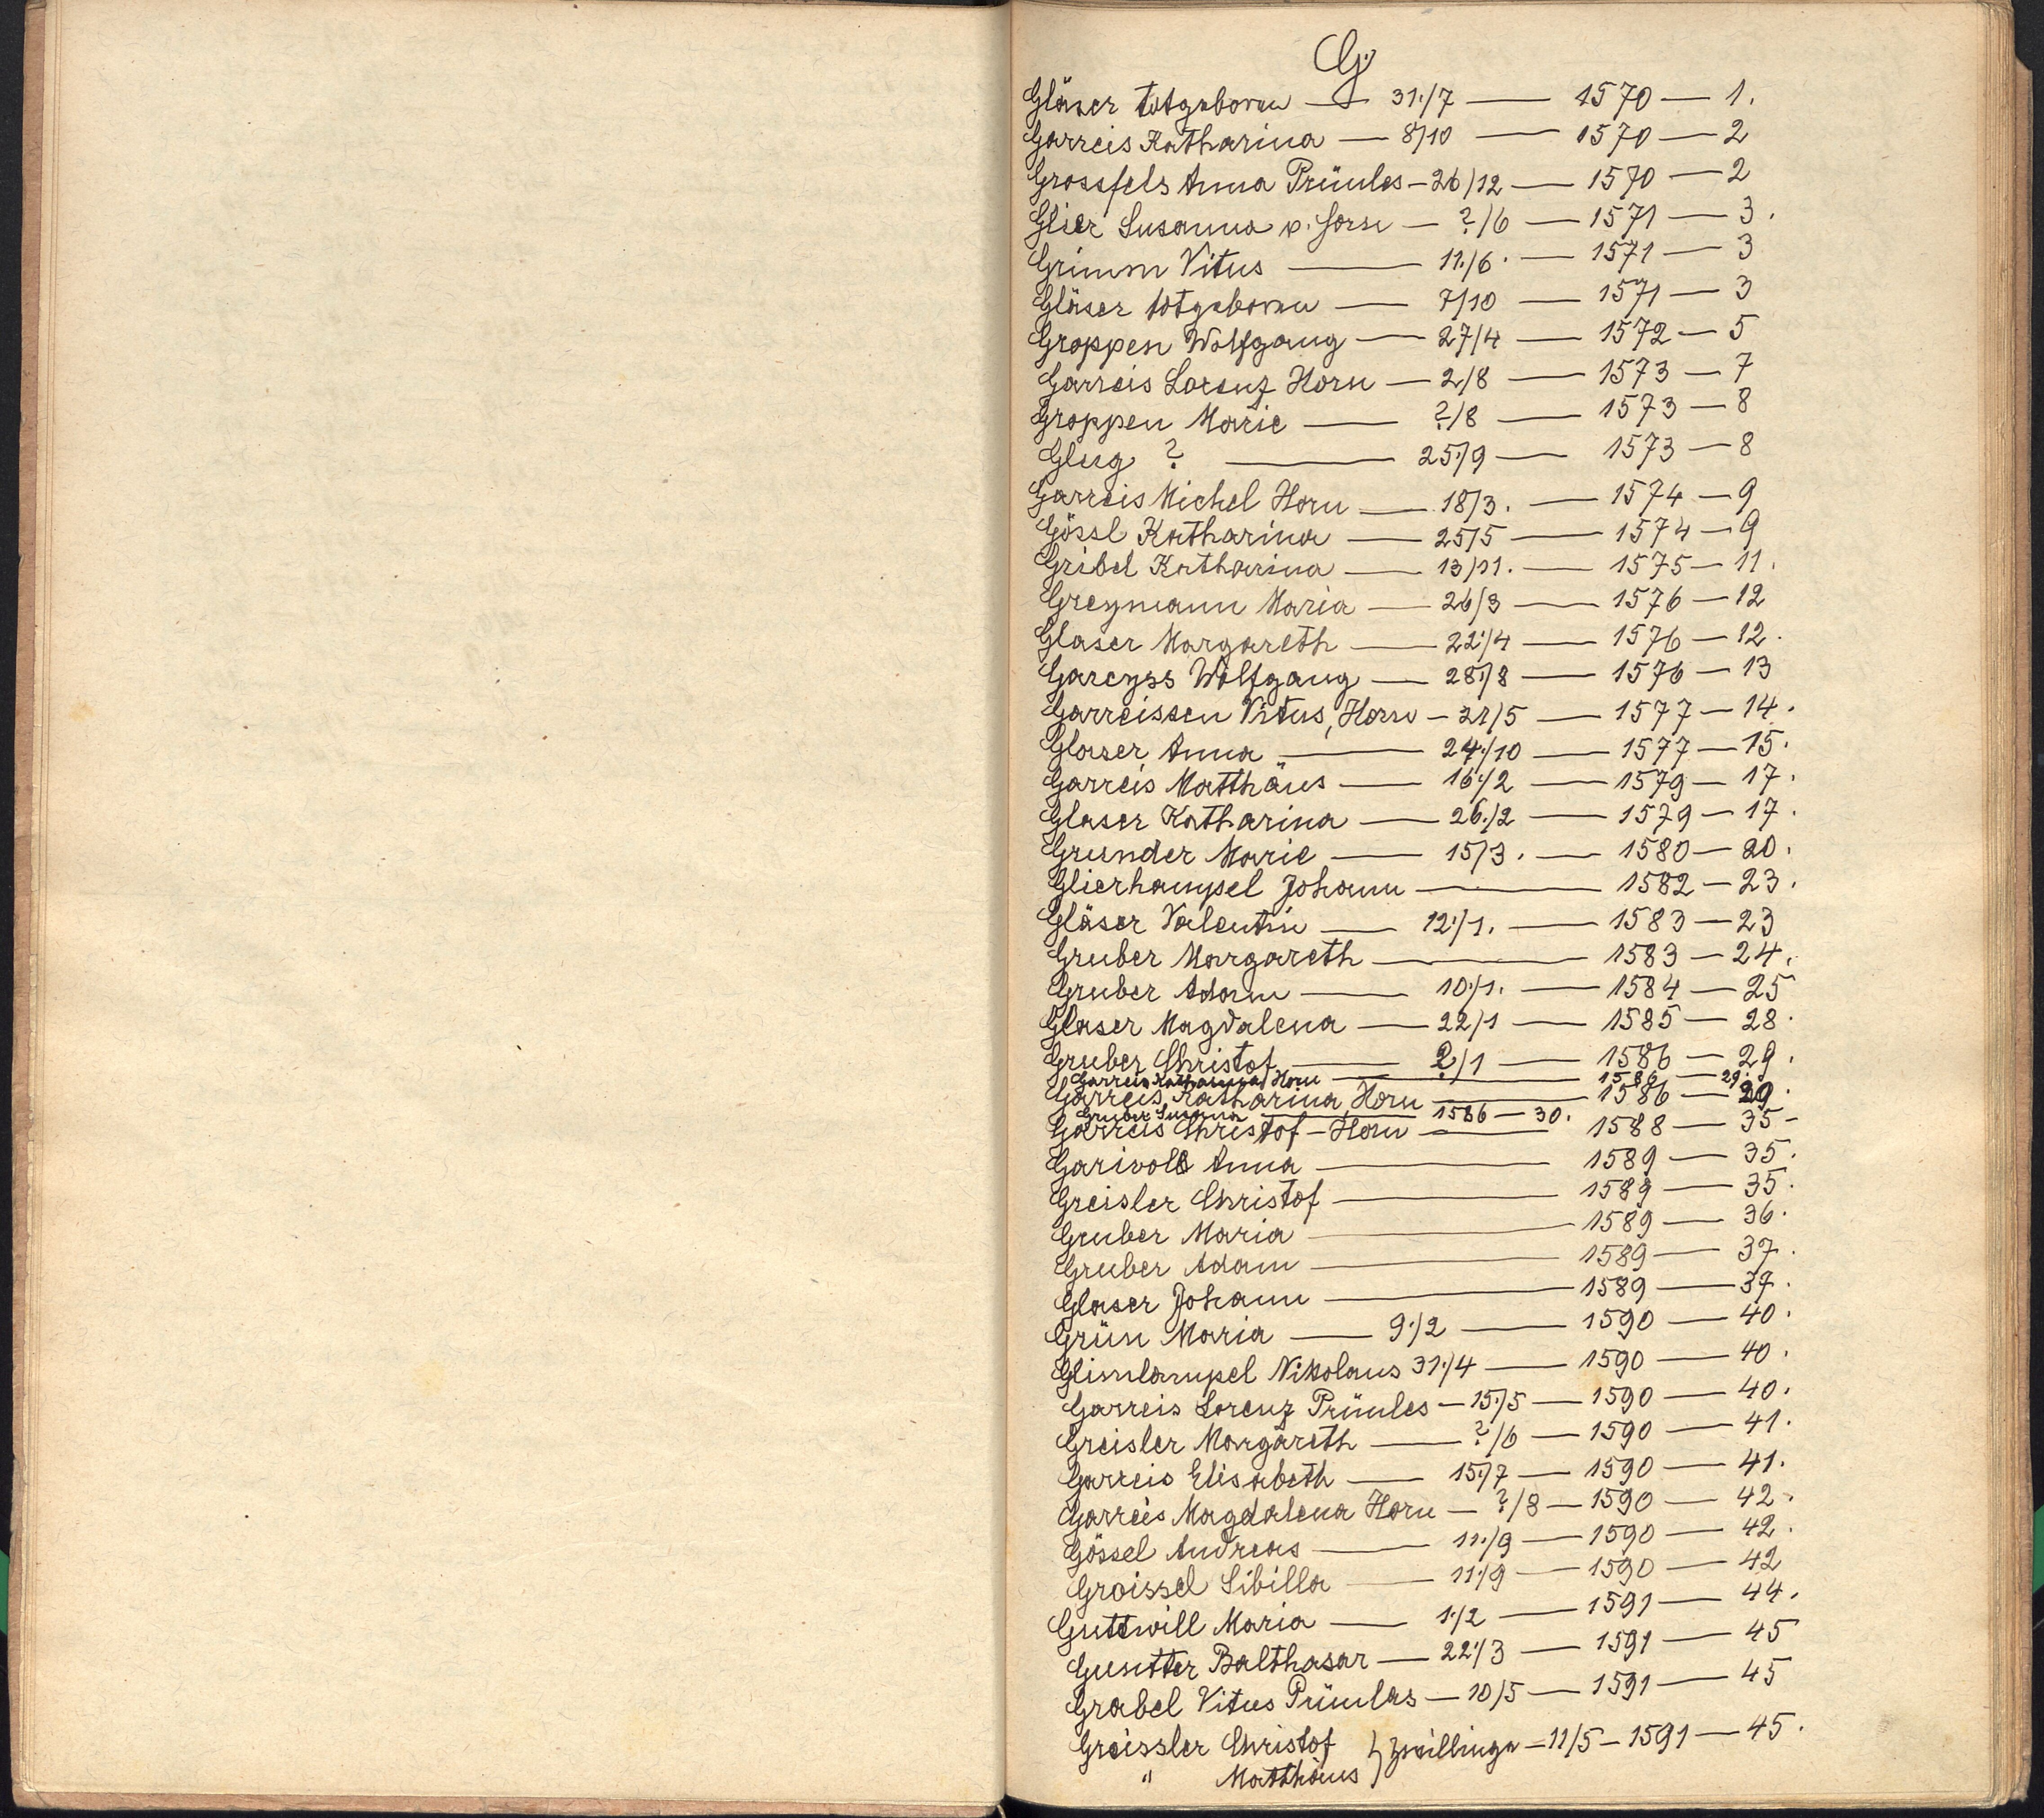 G.
Gläser totgeboren — 31./7 — 1570 — 1.
Garreis Katharina — 8/10 — 1570 — 2
Grossfels Anna Prünles — 26/12 — 1570 — 2
Glier Susanna v. Horn — ?/6 — 1571 — 3.
Grimm Vitus — 11./6. — 1571 — 3
Gläser totgeboren — 7/10 — 1571 — 3
Groppen Wolfgang — 27/4 — 1572 — 5
Garreis Lorenz Horn — 2/8 — 1573 — 7
Groppen Marie — ?/8 — 1573 — 8
Glug ? — 25./9 — 1573 — 8
Garreis Michel Horn — 18/3. — 1574 — 9
Gössl Katharina — 25/5 — 1574 — 9
Gribel Katharina — 13/11. — 1575 — 11.
Greymann Maria — 26/3 — 1576 — 12
Glaser Margareth — 22./4 — 1576 — 12.
Gareyss Wolfgang — 28./8 — 1576 — 13
Garreissen Vitus, Horn — 31/5 — 1577 — 14.
Glaser Anna — 24./10 — 1577 — 15.
Garreis Matthäus — 16./2 — 1579 — 17.
Glaser Katharina — 26./2 — 1579 — 17.
Grunder Marie — 15/3. — 1580 — 20.
Glierhampel Johann — 1582 — 23.
Gläser Valentin — 12./1. — 1583 — 23
Gruber Margareth — 1583 — 24.
Gruber Adam — 10./1. — 1584 — 25
Glaser Magdalena — 22/1 — 1585 — 28.
Gruber Christof — ?/1 — 1586 — 29.
Garreis Katharina Horn — 1586 — 29.
Garreis Katharina Horn — 1586 — 29.
Gruber Susanna 1586 — 30.
Garreis Christof — Horn — 1588 — 35 —
Garivoll Anna — 1589 — 35.
Greisler Christof — 1589 — 35.
Gruber Maria — 1589 — 36.
Gruber Adam — 1589 — 37.
Glaser Johann — 1589 — 37.
Grün Maria — 9./2 — 1590 — 40.
Glimlampel Nikolaus 31./4 — 1590 — 40.
Garreis Lorenz Prünles — 15./5 — 1590 — 40.
Greisler Margareth — ?/6 — 1590 — 41.
Garreis Elisabeth — 15./7 — 1590 — 41.
Garreis Magdalena Horn — ?/8 — 1590 — 42.
Gössel Andreas — 11./9 — 1590 — 42.
Groissel Sibilla — 11./9 — 1590 — 42
Guttwill Maria — 1./2 — 1591 — 44.
Guntter Balthasar — 22./3 — 1591 — 45
Grabel Vitus Prünlas — 10/5 — 1591 — 45
Greissler Christof } Zwillinge — 11/5 — 1591 — 45.
" Matthäus